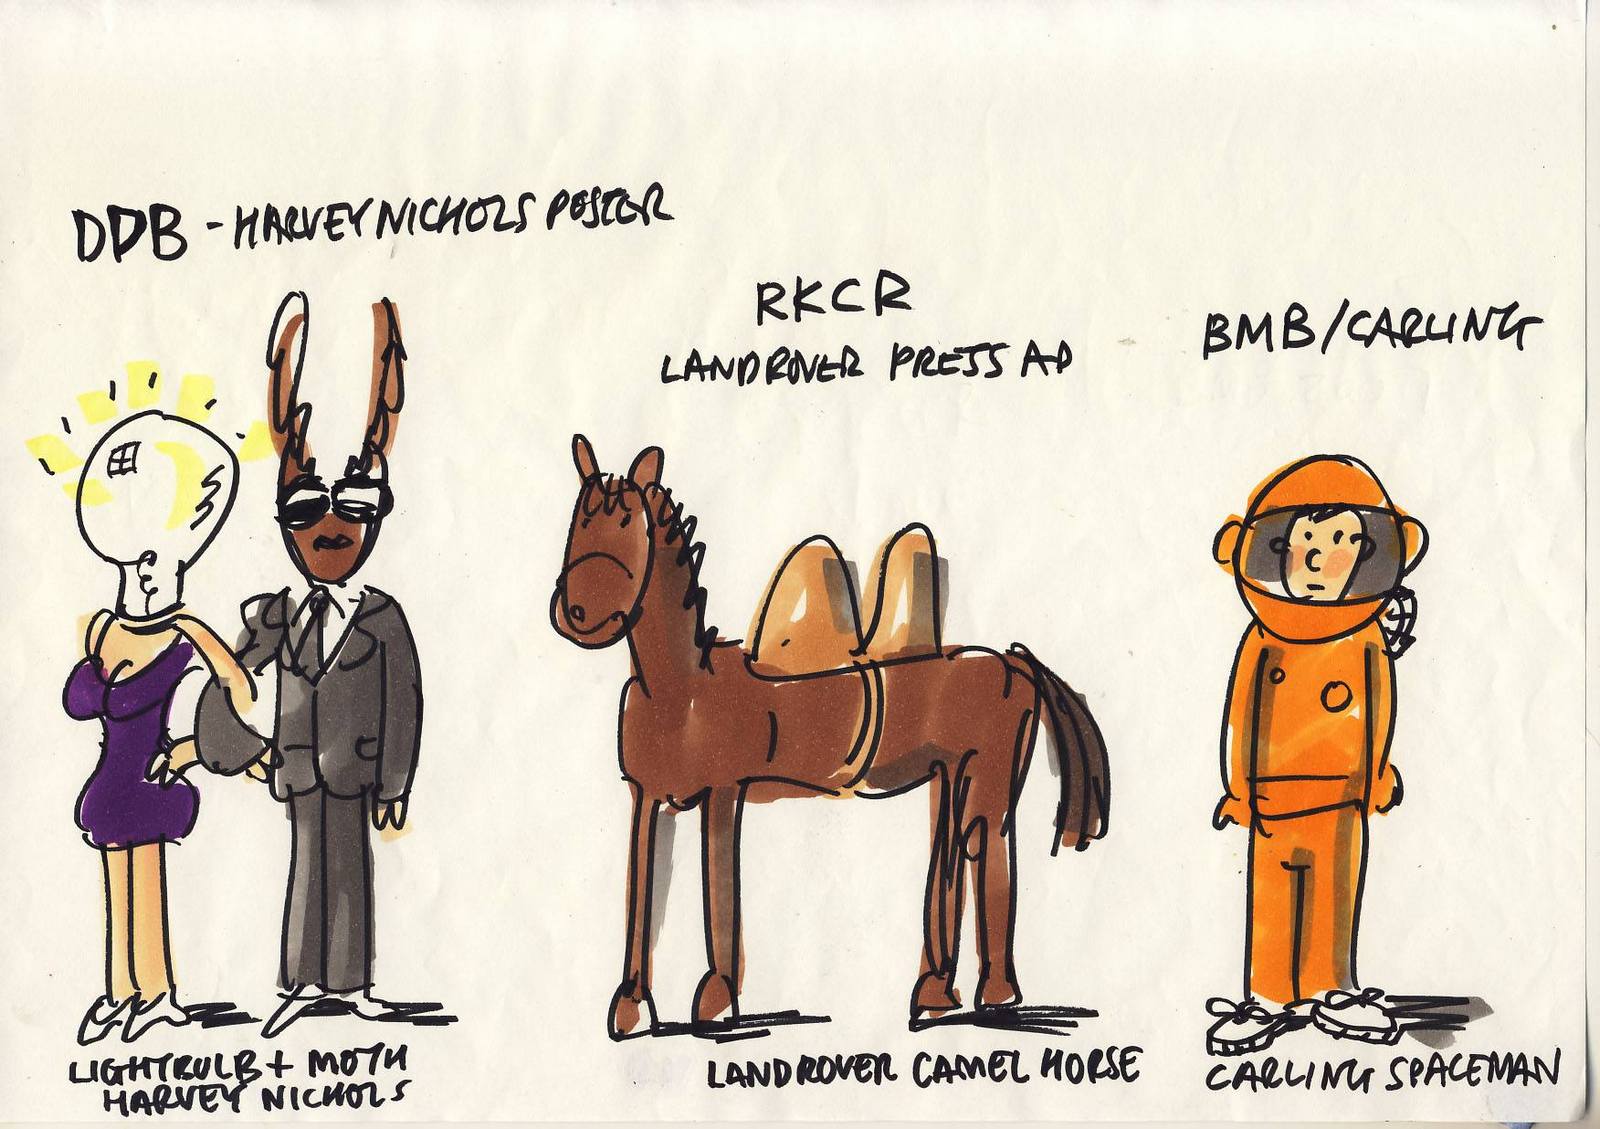 DDB - HARVEY NICHOLS POSTER
RKCR
LANDROVER PRESS AD
BMB/CARLING
LIGHTBULB + MOTH
HARVEY NICHOLS
LANDROVER CAMEL HORSE
CARLING SPACEMAN